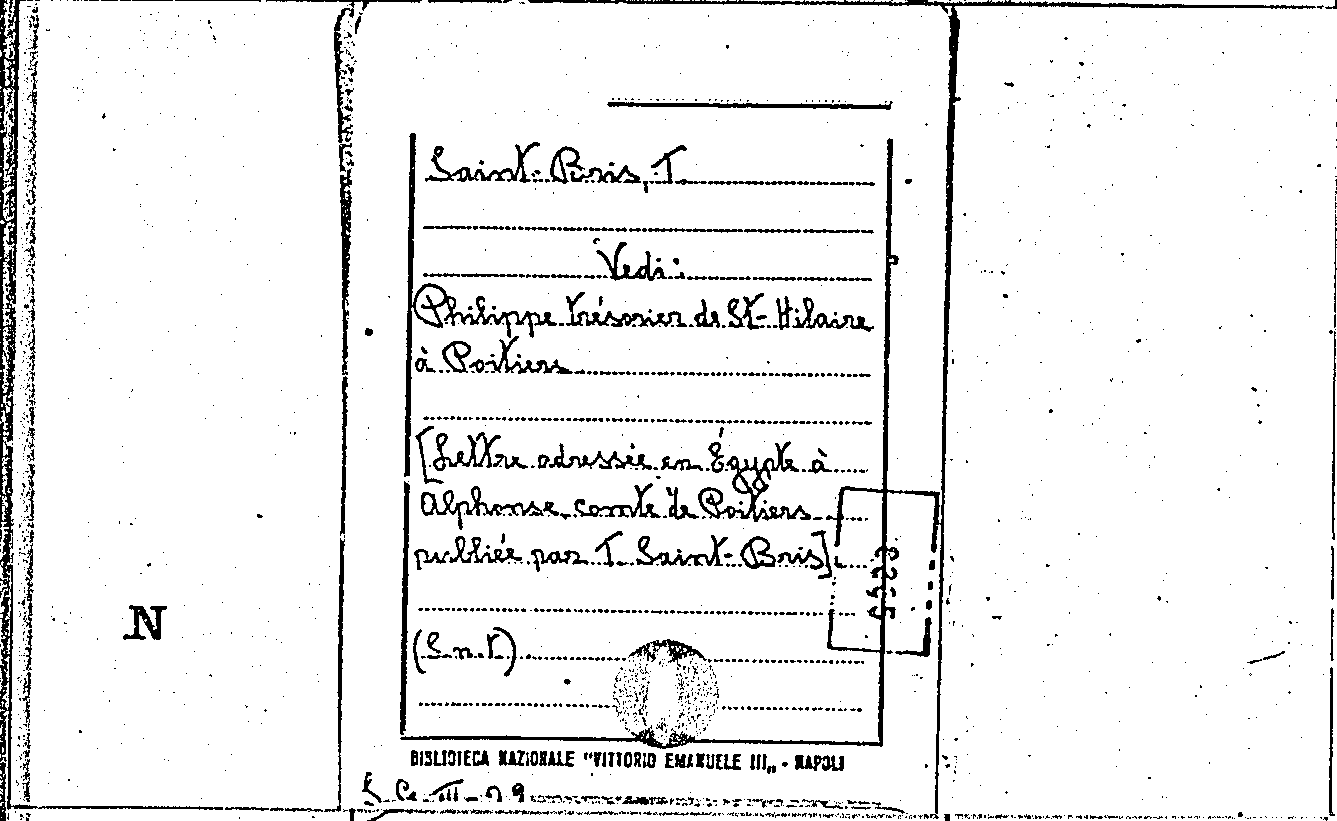 Saint-Bris, T.
Vedi:
Philippe trésorier de St-Hilaire
à Poitiers
[Lettre adressée en Égypte à
Alphonse comte de Poitiers
publiée par T. Saint-Bris]
(S.n.t.)
N
BIBLIOTECA NAZIONALE "VITTORIO EMANUELE III„ - NAPOLI